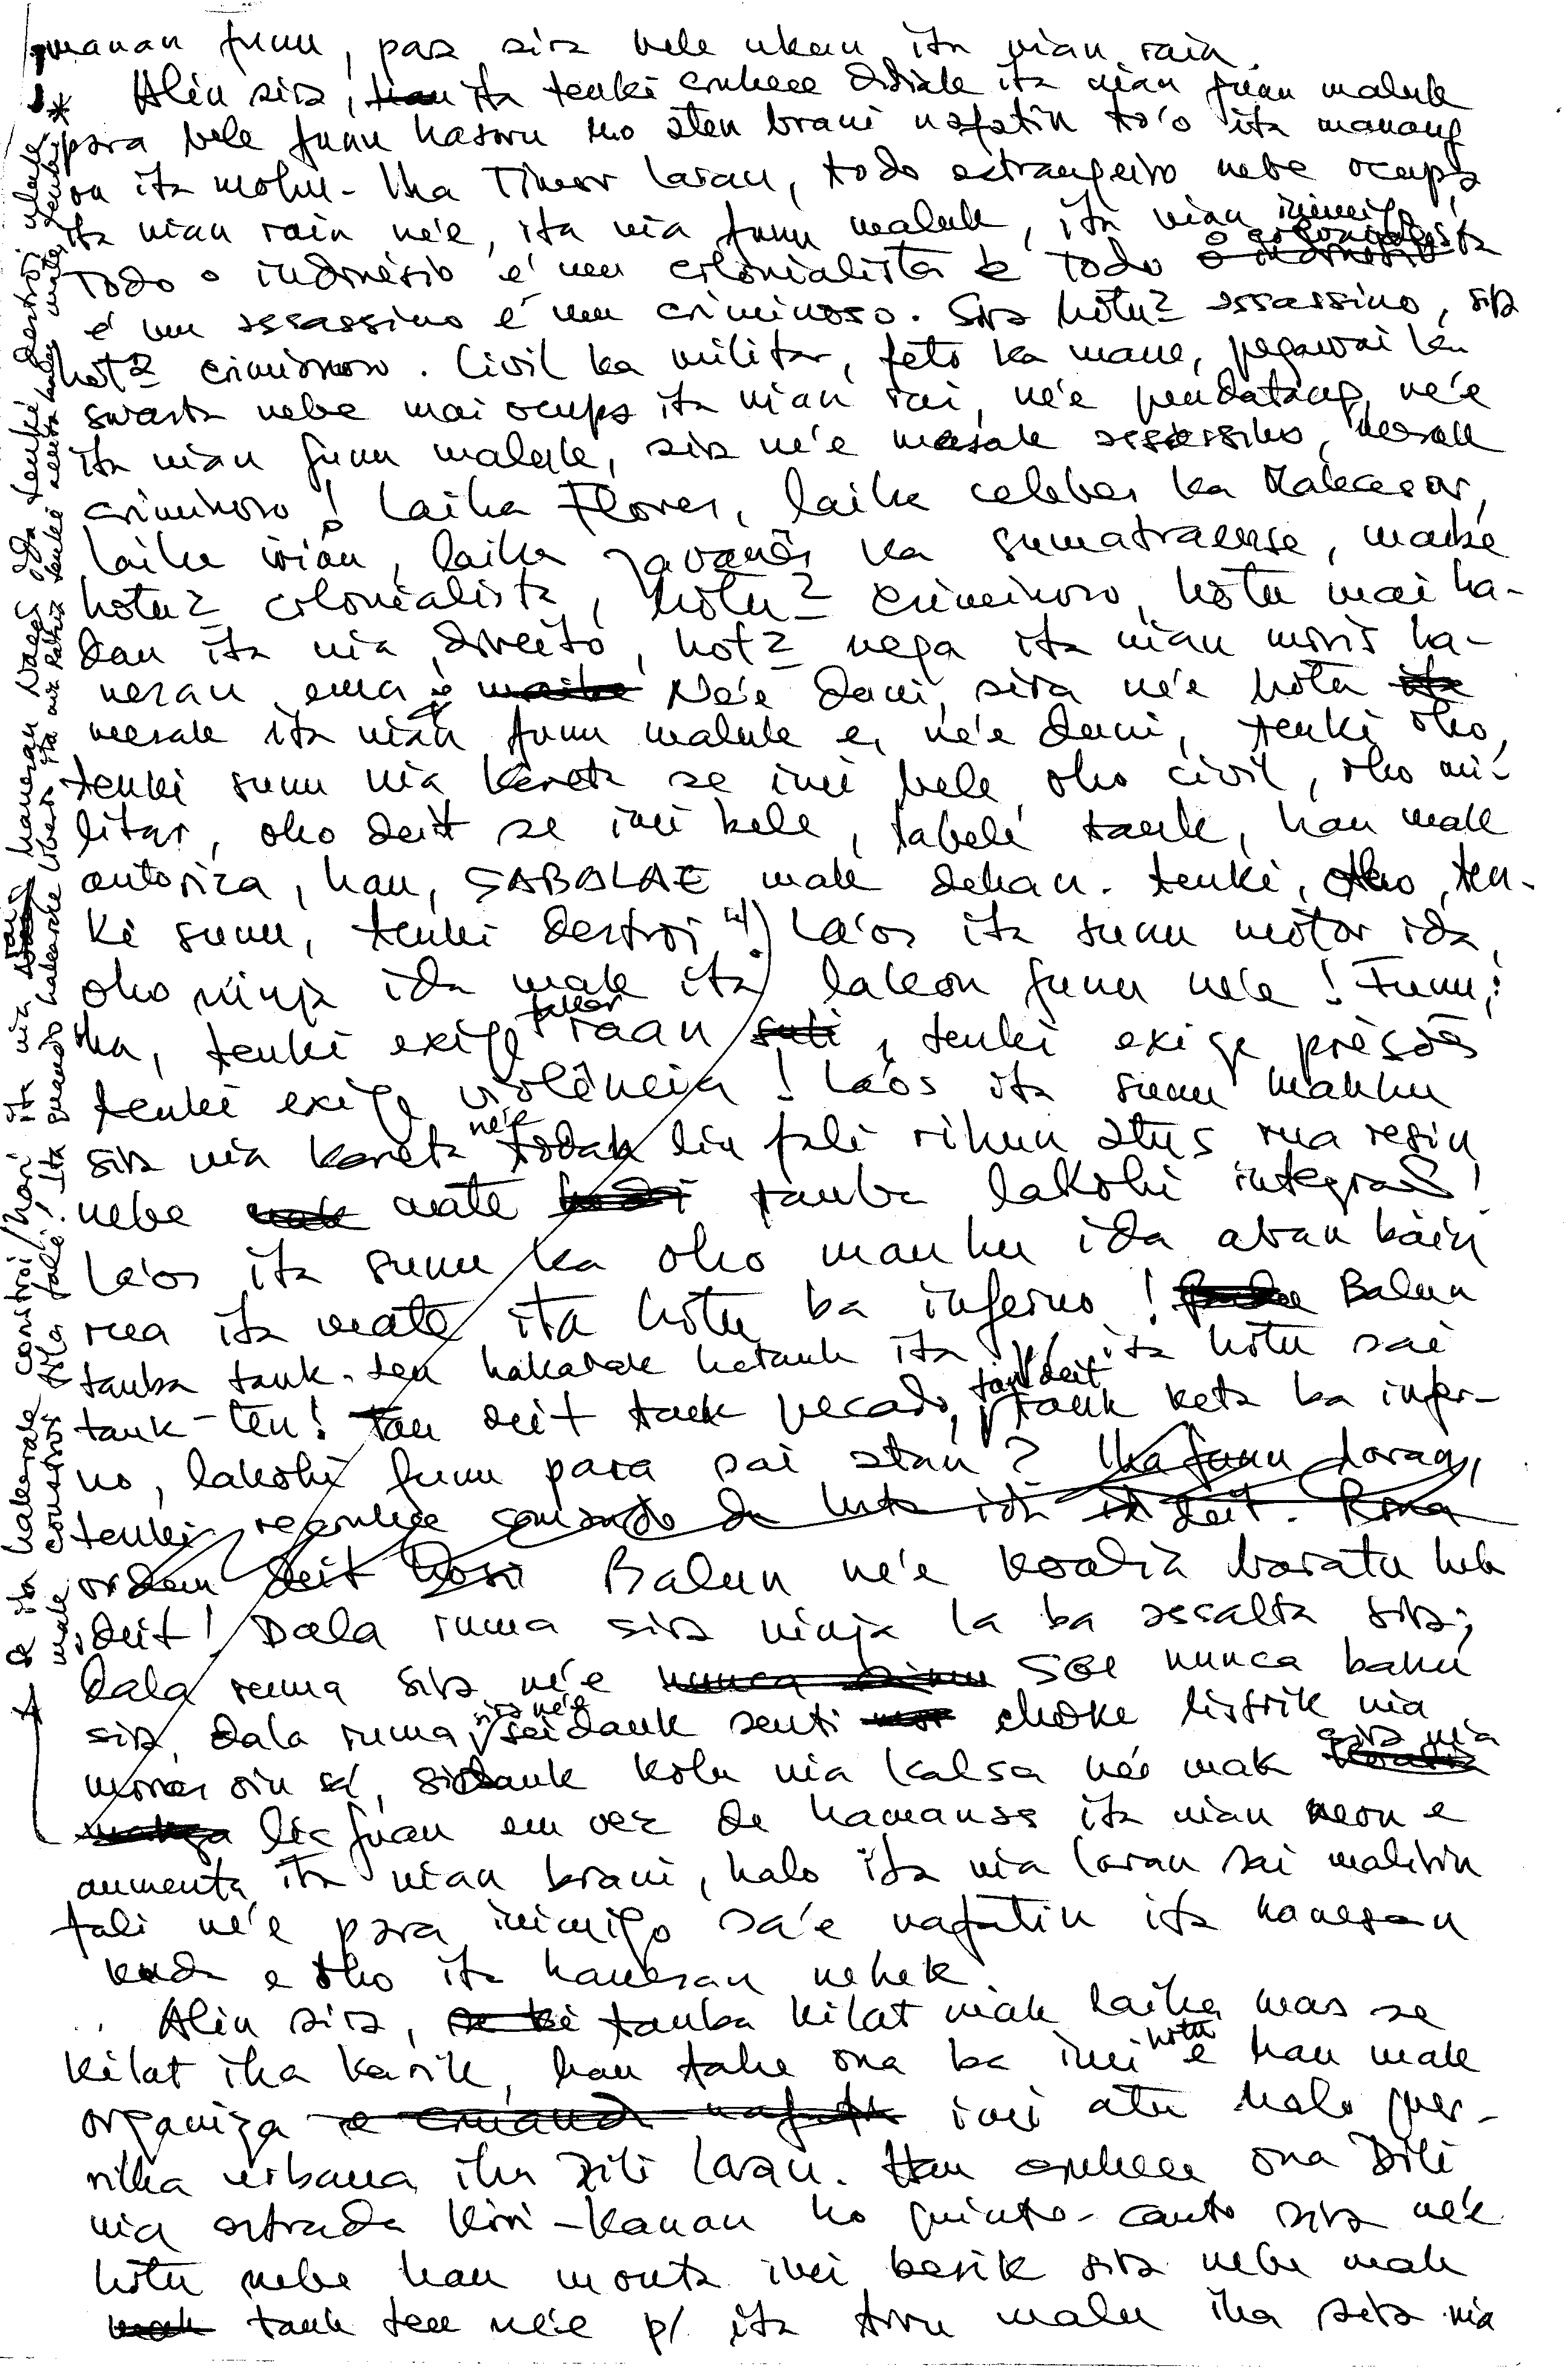 manan funu, para sira bele ukun ita nian rain.
Alin sira, ita tenki conhece didiak ita nian funu maluk
para bele funu hasoru ho aten brani nafatin to'o ita manang
ou ita mohu. Iha Timor laran, todo estrangeiro nebe ocupa
ita nian rain ne'e, ita nia funu maluk, ita nian inimigo,
Todo o indonésio é um colonialista e todo o colonialista
é um assassino é um criminoso. Sira hotu2 assassino, sira
hot2 criminoso. Civil ka militar, feto ka mane, pegawai ka
swasta nebe mai ocupa ita nian rai, ne'e pendatang, ne'e
ita nian funu maluk, sira ne'e mesak assassino, mesak
criminoso! Laiha Flores, laiha celebes ka Makassar,
laiha irian, laiha javanês ka sumatraense, maibé
hotu2 colonialista, hotu2 criminoso, hotu mai ha-
dau ita nia direito, hot2 nega ita nian moris ha-
nesan ema. Ne'e duni, sira ne'e hotu
mesak ita nian funu maluk e, ne'e duni, tenki oho,
tenki sunu nia kareta se imi bele, oho civil, oho mi-
litar, oho deit se imi bele, labele tauk, hau mak
autoriza, hau, SABALAE mak dehan. tenki, oho, ten-
ki sunu, tenki destroi *) La'os ita sunu motor ida,
oho ninja ida mak ita lakon funu ne'e! Funu,
tenki exige fakar raan, tenki exige
tenki exige violência! La'os ita sunu manhu
sira nia kareta ne'e todan liu fali rihun atus rua resin
nebe mate tauba lakohi integrasi!
La'os ita sunu ka oho manhu ida aban bain
rua ita mate ita hotu ba inferno! Balun
tauba tauk-ten hakarak hatauk ita p/ ita hotu sai
tauk-ten! Tau deit tauk pecado, tau deit tauk keta ba infer-
no, lakohi funu para sai atan? Iha funu laran,
tenki reconhece comando da luta ida deit. Rona
ordem deit hosi Balun ne'e koalia baratu hela
deit! Dala ruma sira ninja la ba assalta sira;
dala ruma sira ne'e SGI nunca baku
sira, dala ruma sira ne'e seidauk senti choke listrik nia
moras oin sá, seidauk kolu nia kalsa né mak sira nia
lia fuan em vez de hamanas ita nian neon e
aumenta ita nian brani, halo ita nia laran sai malirin
fali ne'e para inimigo sa'e nafatin ita hanesan
kuda e oho ita hanesan nehek.
Alin sira, tauba kilat mak laiha, mas se
kilat iha karik, hau tahe ona ba imi hotu e hau mak
organiza imi atu halo guer-
rilha urbana iha Dili laran. Hau conhece ona Dili
nia estrada kiri-kanan ho quinto-canto sira ne'e
hotu nebe hau monta imi besik sira nebe mak
tauk ten ne'e p/ ita tiru malu iha sira nia
* Se ita hakarak constroi/hari ita nia rai hanesan Nação ida tenki destroi uluk
mak constroi fila fali! Ita quando hakarak liberta ita nia Pátria tenki